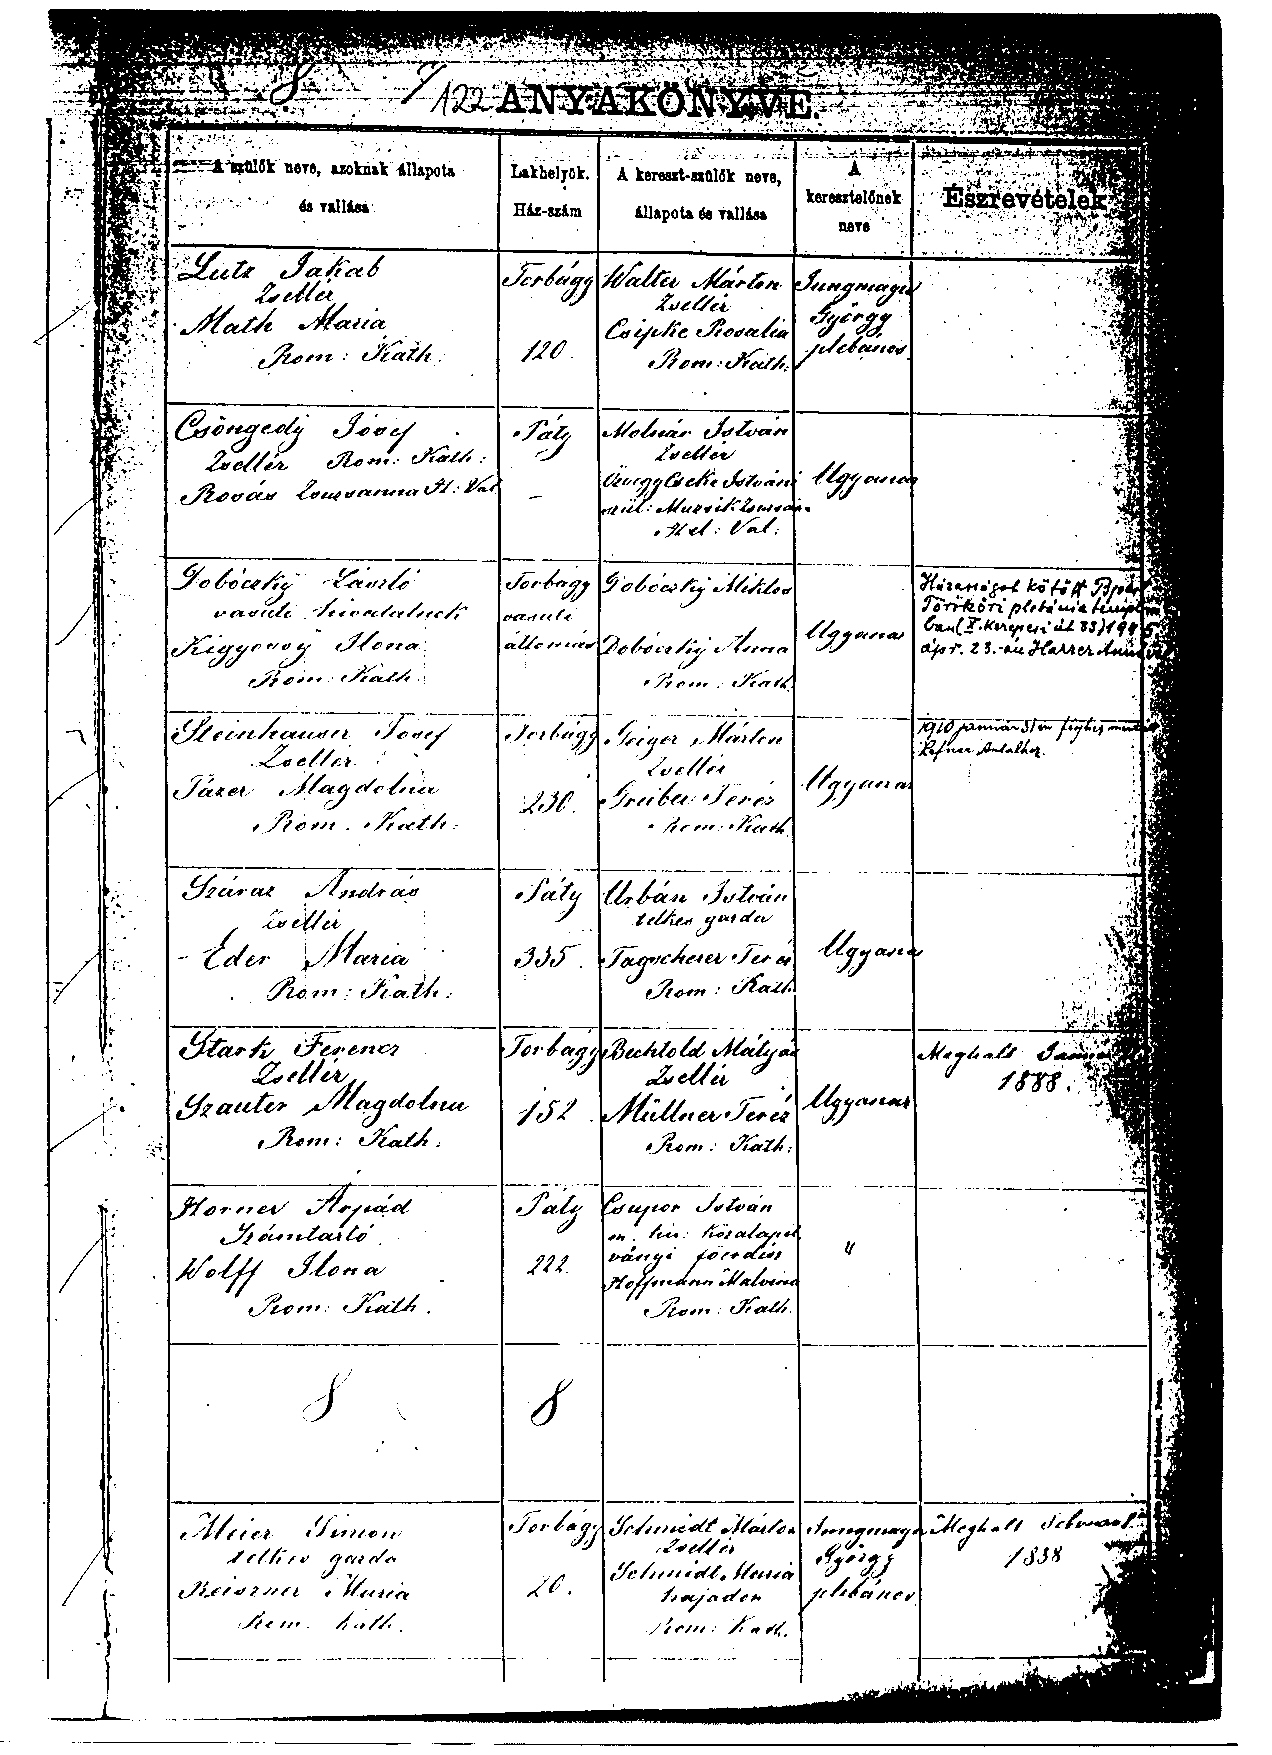 8
122 ANYAKÖNYVE.
A szülők neve, azoknak állapota
és vallása
Lakhelyök.
Ház-szám
A kereszt-szülők neve,
állapota és vallása
A
keresztelőnek
neve
Észrevételek
Lutz Jakab
Zsellér
Math Maria
Rom: Kath:
Torbágy
120.
Walter Márton
Zsellér
Csipke Rosalia
Rom: Kath:
Jungmayer
György
plebános
Csöngedÿ Jósef
Zsellér Rom: Kath:
Rovás Zsuzsanna H: Val
Páty
–
Molnár István
Zsellér
Özvegy Cseke Istváné
szül: Muzsik
Hel: Val:
Ugyanaz
Dobóczkÿ László
vasuti hivatalnok
Kigyóssÿ Ilona
Rom: Kath:
Torbágy
vasuti
állomás
Dobóczkÿ Miklós
Dobóczkÿ Anna
Rom: Kath.
Ugyanaz
Házasságot kötött Bpest
Törökőri plebánia templom
ban (X. Kerepesi út 33)
ápr. 23.-án Harrer
Steinhauser Josef
Zsellér
Pázer Magdolna
Rom. Kath:
Torbágy
230.
Geiger Márton
Zsellér
Greiber Teréz
Rom: Kath.
Ugyanaz
1910 január
Refner Antalhoz.
Száraz András
Zsellér
Éder Maria
Rom: Kath:
Páty
335.
Urbán István
telkes gazda
Tagscherer Teréz
Rom: Kath
Ugyanaz
Stark Ferencz
Zsellér
Szauter Magdolna
Rom: Kath:
Torbágy
152.
Bechtold Mátyás
Zsellér
Müllner Teréz
Rom: Kath:
Ugyanaz
Meghalt
1888.
Horner Árpád
Számtartó
Wolff Ilona
Rom: Kath.
Páty
222.
Csupor István
m. kir. közalapít
ványi főerdész
Hoffmann Malvina
Rom: Kath.
"
8
8
Meier Simon
telkes gazda
Maria
Rom. kath.
Torbágy
20.
Schmidt Márton
Zsellér
Schmidt Maria
hajadon
Rom: Kath.
Jungmayer
György
plebános
Meghalt
1888